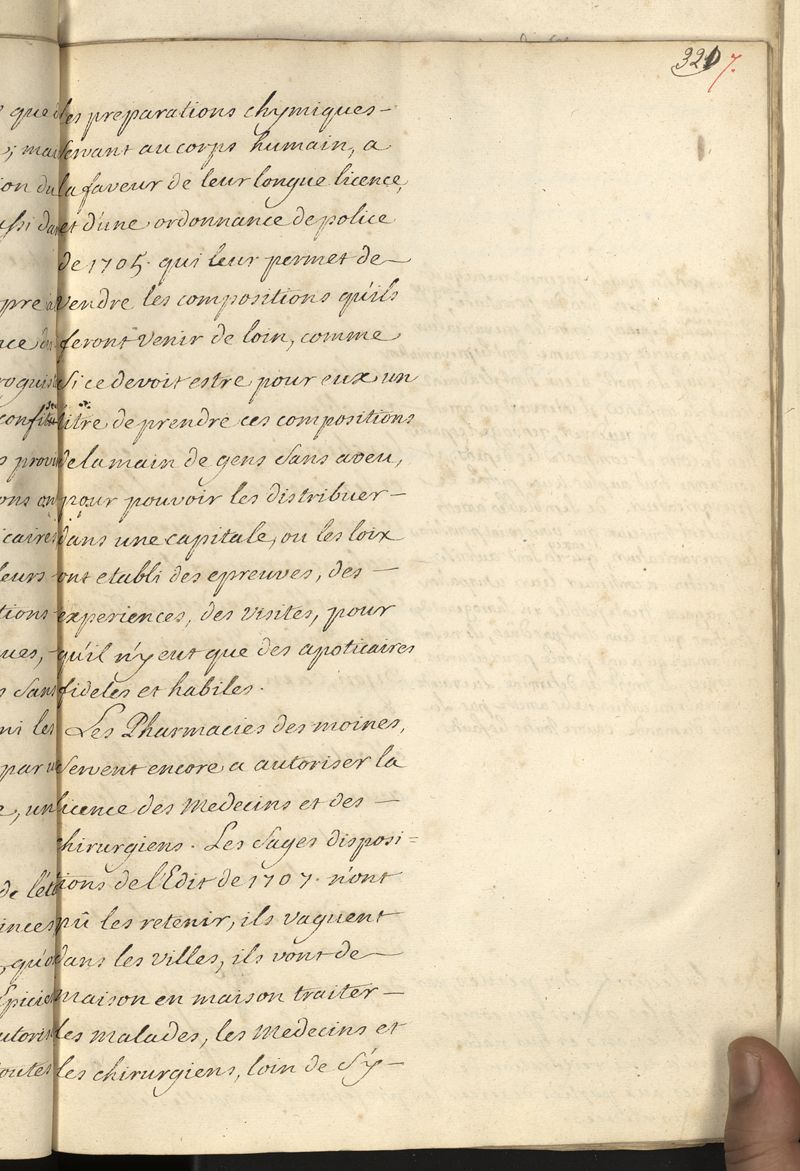 321 7.
les preparations chymiques –
servant au corps humain, a
la faveur de leur longue licence,
et d'une ordonnance de police
de 1705. qui leur permet de –
vendre les compositions qu'ils
feront venir de loin, comme
si ce devoit estre pour eux un
titre de prendre ces compositions
de la main de gens sans aveu,
pour pouvoir les distribuer –
dans une capitale, ou les loix
ont etabli des epreuves, des –
experiences, des visites, pour
qu'il n'y eut que des apoticaires
fideles et habiles.
Les Pharmacies des moines,
servent encore a autoriser la
licence des Medecins et des –
chirurgiens. Les sages disposi=
tions de l'Edit de 1707. n'ont
pû les retenir, ils vaguent
dans les villes, ils vont de –
maison en maison traiter –
les malades, les Medecins et
les chirurgiens, loin de s'y –